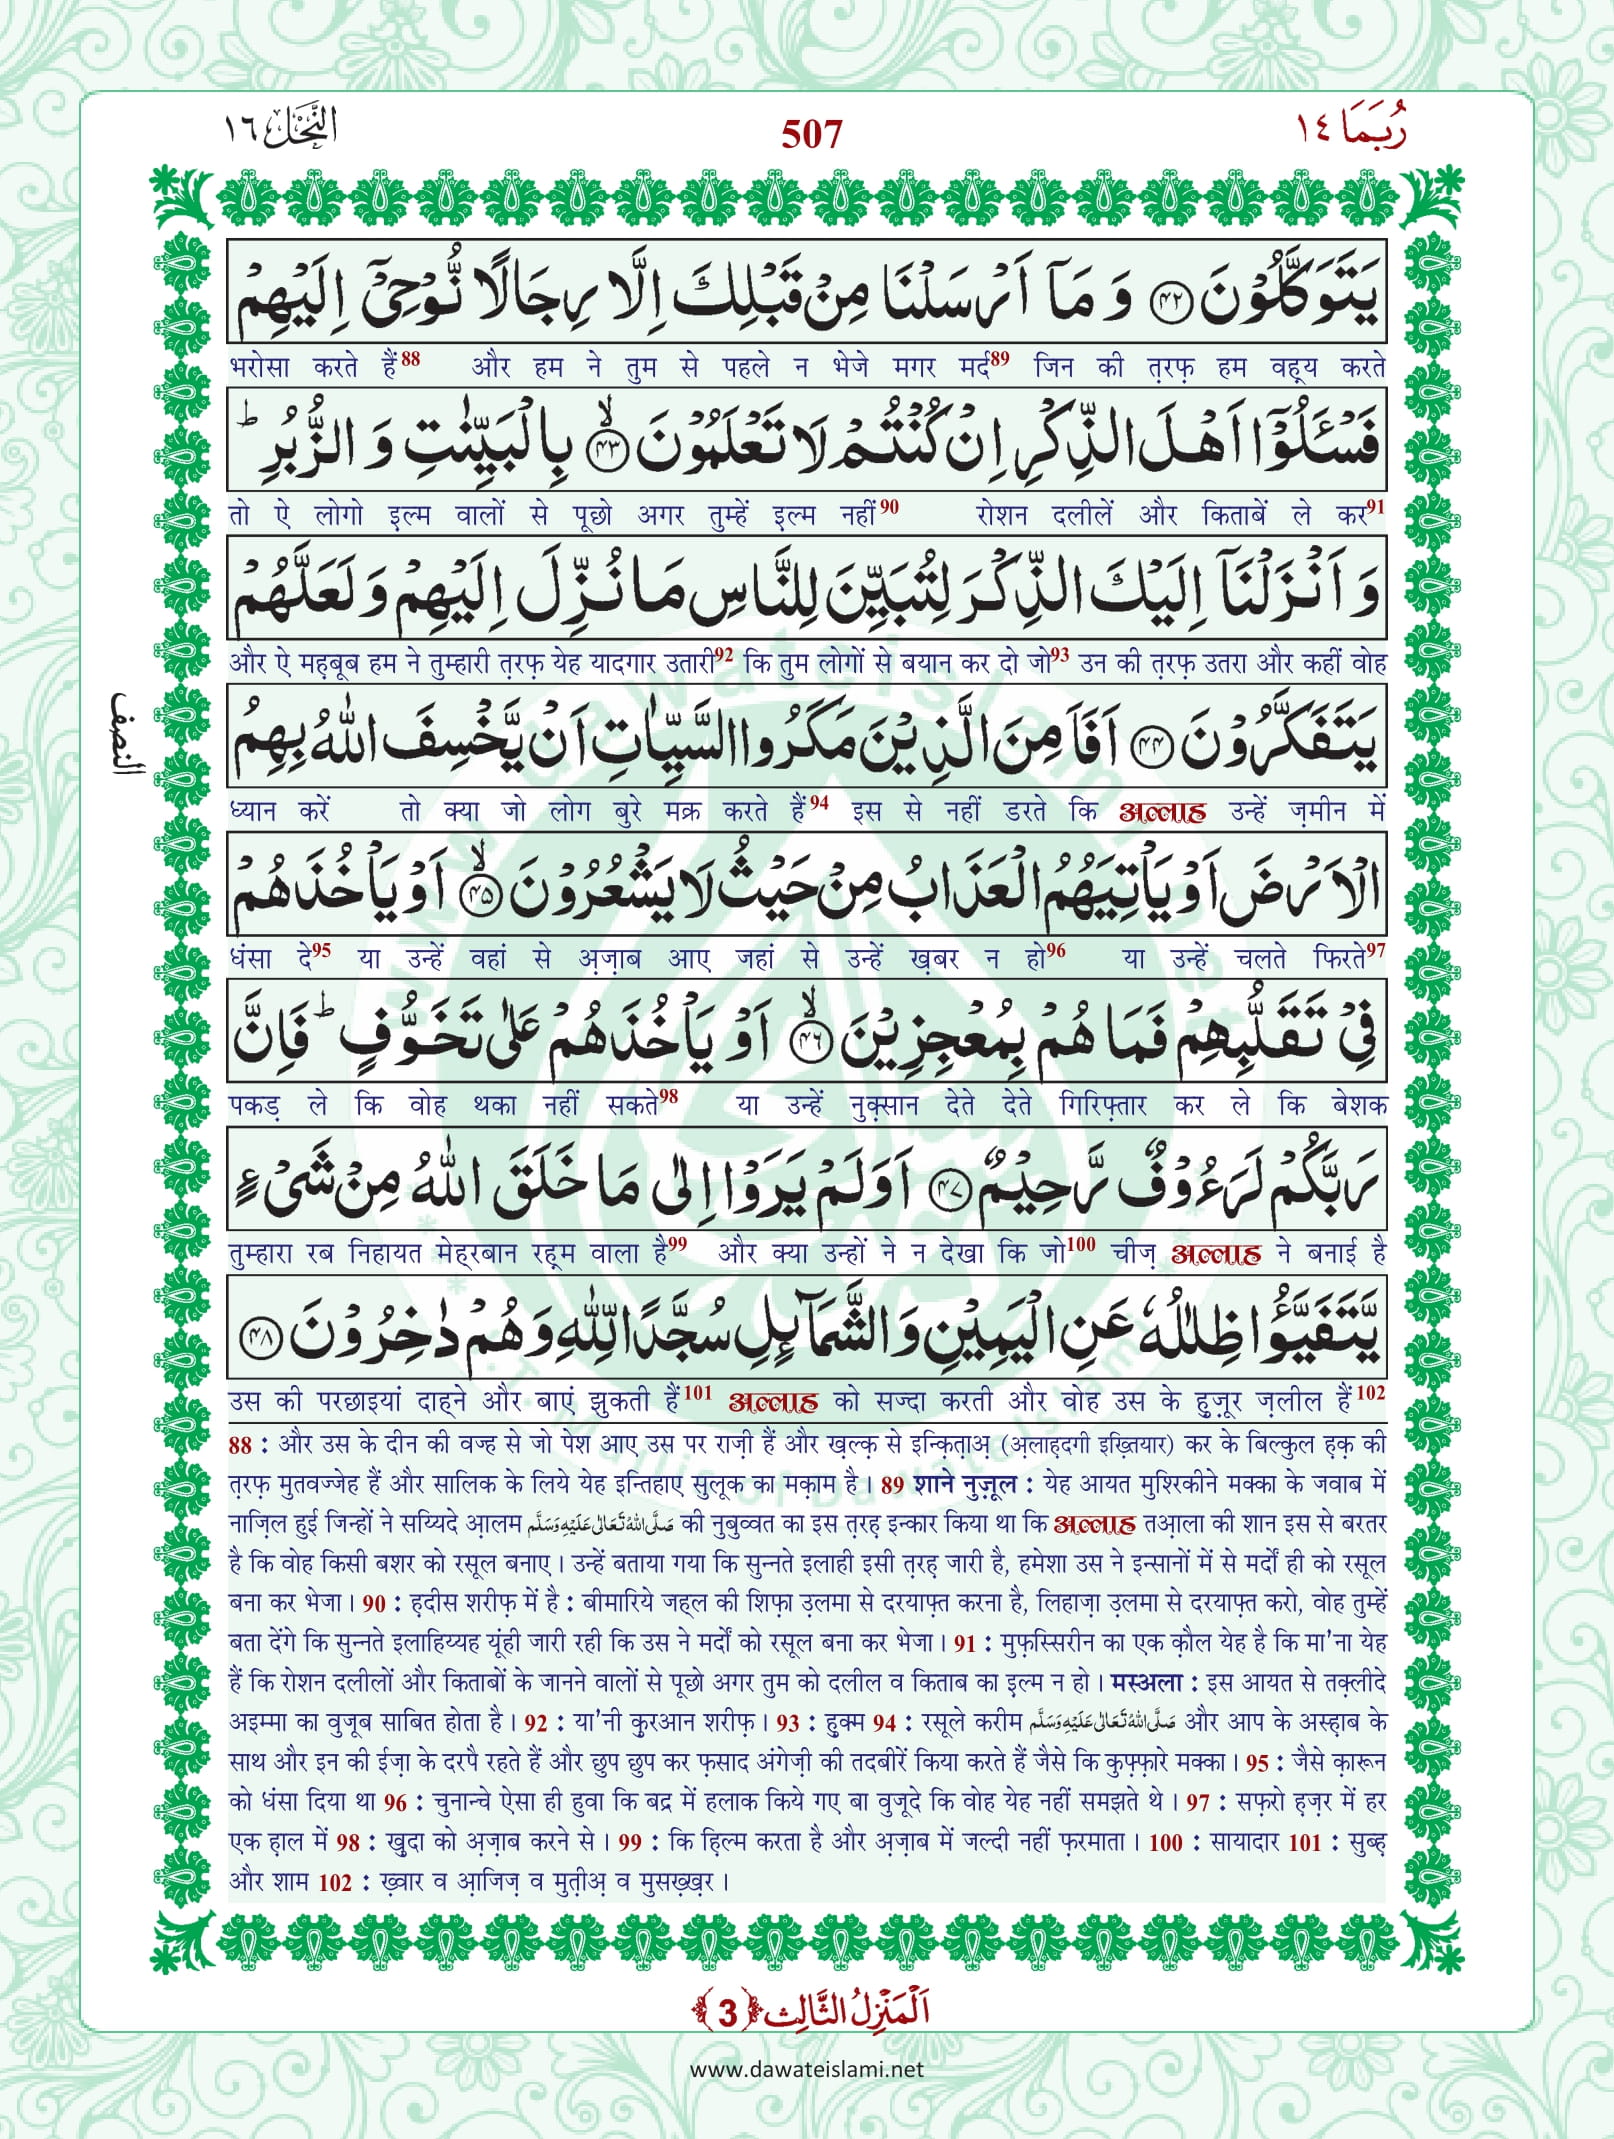 رُبَمَا ١٤
507
النَّحْل ١٦
يَتَوَكَّلُوْنَ ﴿۴۲﴾ وَ مَاۤ اَرْسَلْنَا مِنْ قَبْلِكَ اِلَّا رِجَالًا نُّوْحِیْۤ اِلَیْهِمْ
भरोसा करते हैं88 और हम ने तुम से पहले न भेजे मगर मर्द89 जिन की त़रफ़ हम वह़्य करते
فَسْـَٔلُوْۤا اَهْلَ الذِّكْرِ اِنْ كُنْتُمْ لَا تَعْلَمُوْنَ ﴿ۙ۴۳﴾ بِالْبَیِّنٰتِ وَ الزُّبُرِ ؕ
तो ऐ लोगो इ़ल्म वालों से पूछो अगर तुम्हें इ़ल्म नहीं90 रोशन दलीलें और किताबें ले कर91
وَ اَنْزَلْنَاۤ اِلَیْكَ الذِّكْرَ لِتُبَیِّنَ لِلنَّاسِ مَا نُزِّلَ اِلَیْهِمْ وَ لَعَلَّهُمْ
और ऐ मह़बूब हम ने तुम्हारी त़रफ़ येह यादगार उतारी92 कि तुम लोगों से बयान कर दो जो93 उन की त़रफ़ उतरा और कहीं वोह
یَتَفَكَّرُوْنَ ﴿۴۴﴾ اَفَاَمِنَ الَّذِیْنَ مَكَرُوا السَّیِّاٰتِ اَنْ یَّخْسِفَ اللّٰهُ بِهِمُ
النصف
ध्यान करें तो क्या जो लोग बुरे मक्र करते हैं94 इस से नहीं डरते कि अल्लाह उन्हें ज़मीन में
الْاَرْضَ اَوْ یَاْتِیَهُمُ الْعَذَابُ مِنْ حَیْثُ لَا یَشْعُرُوْنَ ﴿ۙ۴۵﴾ اَوْ یَاْخُذَهُمْ
धंसा दे95 या उन्हें वहां से अ़ज़ाब आए जहां से उन्हें ख़बर न हो96 या उन्हें चलते फिरते97
فِیْ تَقَلُّبِهِمْ فَمَا هُمْ بِمُعْجِزِیْنَ ﴿ۙ۴۶﴾ اَوْ یَاْخُذَهُمْ عَلٰى تَخَوُّفٍ ؕ فَاِنَّ
पकड़ ले कि वोह थका नहीं सकते98 या उन्हें नुक़्सान देते देते गिरिफ़्तार कर ले कि बेशक
رَبَّكُمْ لَرَءُوْفٌ رَّحِیْمٌ ﴿۴۷﴾ اَوَ لَمْ یَرَوْا اِلٰى مَا خَلَقَ اللّٰهُ مِنْ شَیْءٍ
तुम्हारा रब निहायत मेह्रबान रह़म वाला है99 और क्या उन्हों ने न देखा कि जो100 चीज़ अल्लाह ने बनाई है
یَّتَفَیَّؤُا ظِلٰلُهٗ عَنِ الْیَمِیْنِ وَ الشَّمَآىٕلِ سُجَّدًا لِّلّٰهِ وَ هُمْ دٰخِرُوْنَ ﴿۴۸﴾
उस की परछाइयां दाह्ने और बाएं झुकती हैं101 अल्लाह को सज्दा करती और वोह उस के हु़ज़ूर ज़लील हैं102
88 : और उस के दीन की वज्ह से जो पेश आए उस पर राज़ी हैं और ख़ल्क़ से इन्क़ित़ाअ़ (अ़लाह़दगी इख़्तियार) कर के बिल्कुल ह़क़ की
त़रफ़ मुतवज्जेह हैं और सालिक के लिये येह इन्तिहाए सुलूक का मक़ाम है। 89 शाने नुज़ूल : येह आयत मुश्रिकीने मक्का के जवाब में
नाज़िल हुई जिन्हों ने सय्यिदे आ़लम صَلَّى اللهُ تَعَالٰى عَلَيْهِ وَسَلَّم की नुबुव्वत का इस त़रह़ इन्कार किया था कि अल्लाह तआ़ला की शान इस से बरतर
है कि वोह किसी बशर को रसूल बनाए। उन्हें बताया गया कि सुन्नते इलाही इसी त़रह़ जारी है, हमेशा उस ने इन्सानों में से मर्दों ही को रसूल
बना कर भेजा। 90 : ह़दीस शरीफ़ में है : बीमारिये जह्ल की शिफ़ा उ़लमा से दरयाफ़्त करना है, लिहाज़ा उ़लमा से दरयाफ़्त करो, वोह तुम्हें
बता देंगे कि सुन्नते इलाहिय्यह यूंही जारी रही कि उस ने मर्दों को रसूल बना कर भेजा। 91 : मुफ़स्सिरीन का एक क़ौल येह है कि मा'ना येह
हैं कि रोशन दलीलों और किताबों के जानने वालों से पूछो अगर तुम को दलील व किताब का इ़ल्म न हो। मस्अला : इस आयत से तक़्लीदे
अइम्मा का वुजूब साबित होता है। 92 : या'नी कु़रआन शरीफ़। 93 : हु़क्म 94 : रसूले करीम صَلَّى اللهُ تَعَالٰى عَلَيْهِ وَسَلَّم और आप के अस्ह़ाब के
साथ और इन की ईज़ा के दरपै रहते हैं और छुप छुप कर फ़साद अंगेज़ी की तदबीरें किया करते हैं जैसे कि कुफ़्फ़ारे मक्का। 95 : जैसे क़ारून
को धंसा दिया था 96 : चुनान्चे ऐसा ही हुवा कि बद्र में हलाक किये गए बा वुजूदे कि वोह येह नहीं समझते थे। 97 : सफ़रो ह़ज़र में हर
एक ह़ाल में 98 : ख़ुदा को अ़ज़ाब करने से। 99 : कि ह़िल्म करता है और अ़ज़ाब में जल्दी नहीं फ़रमाता। 100 : सायादार 101 : सुब्ह़
और शाम 102 : ख़्वार व आ़जिज़ व मुत़ीअ़ व मुसख़्ख़र।
اَلْمَنْزِلُ الثَّالِث ﴿3﴾
www.dawateislami.net